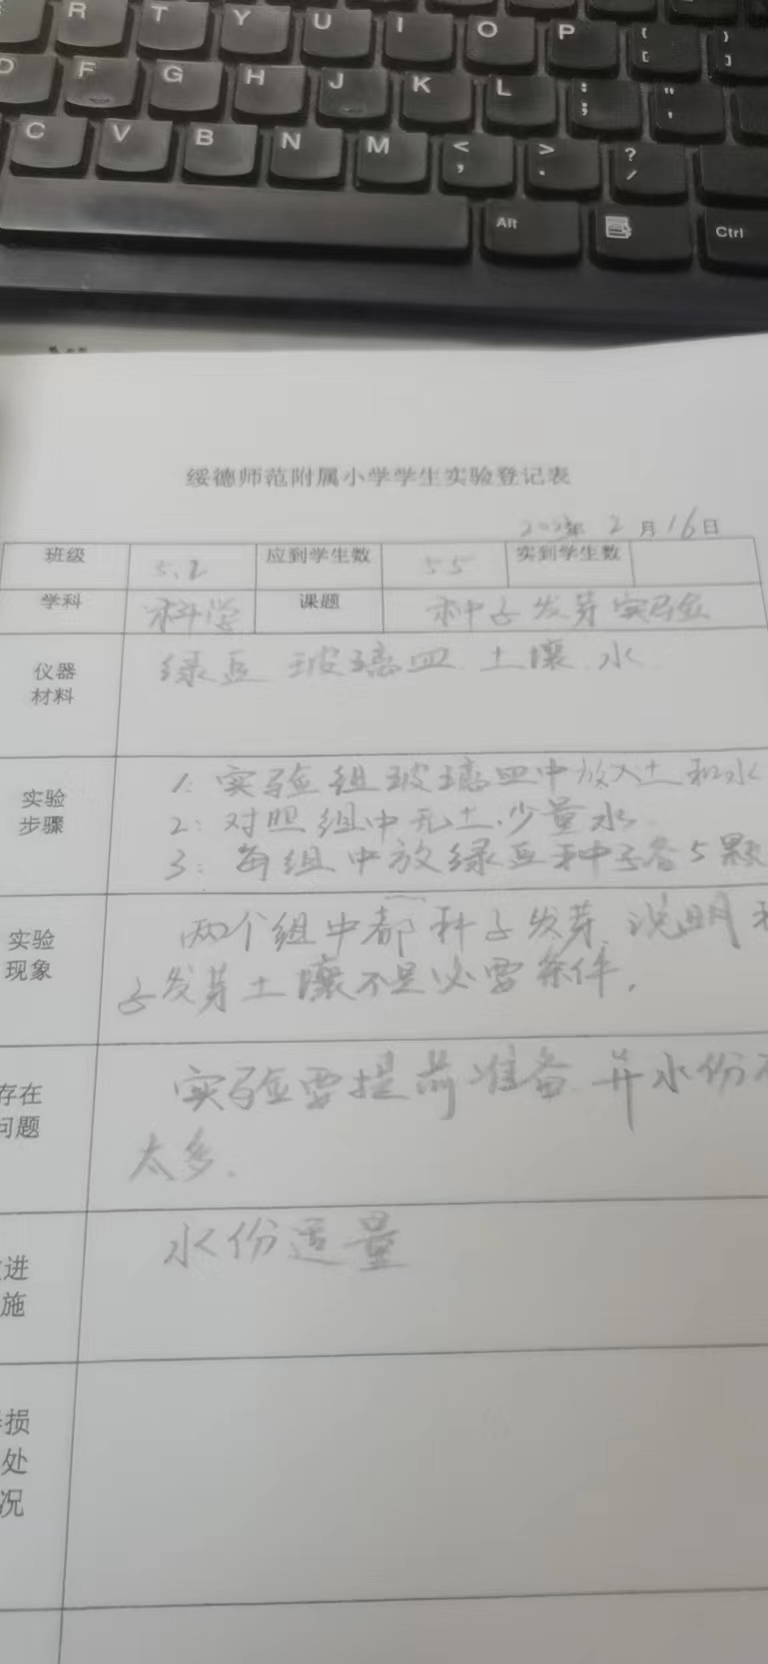 R T Y U I O P { [ } ]
D F G H J K L : ; " '
C V B N M < , > . ? /
Alt Ctrl
绥德师范附属小学学生实验登记表
年 2 月 16 日
班级 5.2 应到学生数 55 实到学生数
学科 科学 课题 种子发芽实验
仪器材料 绿豆 玻璃皿 土壤 水
实验步骤
1: 实验组玻璃皿中放入土和水
2: 对照组中无土.少量水
3: 每组中放绿豆种子各5颗
实验现象
两个组中都种子发芽.说明
子发芽土壤不是必要条件.
存在问题
实验需提前准备.并水份不
太多.
进施 水份适量
损处况